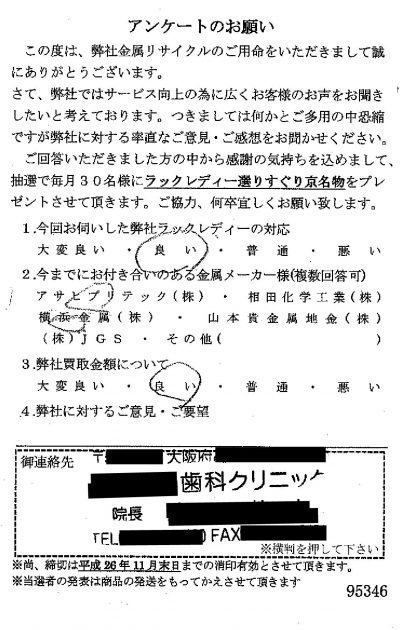 アンケートのお願い
この度は、弊社金属リサイクルのご用命をいただきまして誠
にありがとうございます。
さて、弊社ではサービス向上の為に広くお客様のお声をお聞き
したいと考えております。つきましては何かとご多用の中恐縮
ですが弊社に対する率直なご意見・ご感想をお聞かせください。
ご回答いただきました方の中から感謝の気持ちを込めまして、
抽選で毎月30名様にラックレディー選りすぐり京名物をプレ
ゼントさせて頂きます。ご協力、何卒宜しくお願い致します。
1.今回お伺いした弊社ラックレディーの対応
大変良い・良い・普通・悪い
2.今までにお付き合いのある金属メーカー様(複数回答可)
アサヒプリテック(株)・相田化学工業(株)
横浜金属(株)・山本貴金属地金(株)
(株)JGS・その他( )
3.弊社買取金額について
大変良い・良い・普通・悪い
4.弊社に対するご意見・ご要望
御連絡先 〒 大阪府
歯科クリニック
院長
TEL 0 FAX
※横判を押して下さい
※尚、締切は平成26年11月末日までの消印有効とさせて頂きます。
※当選者の発表は商品の発送をもってかえさせて頂きます
95346